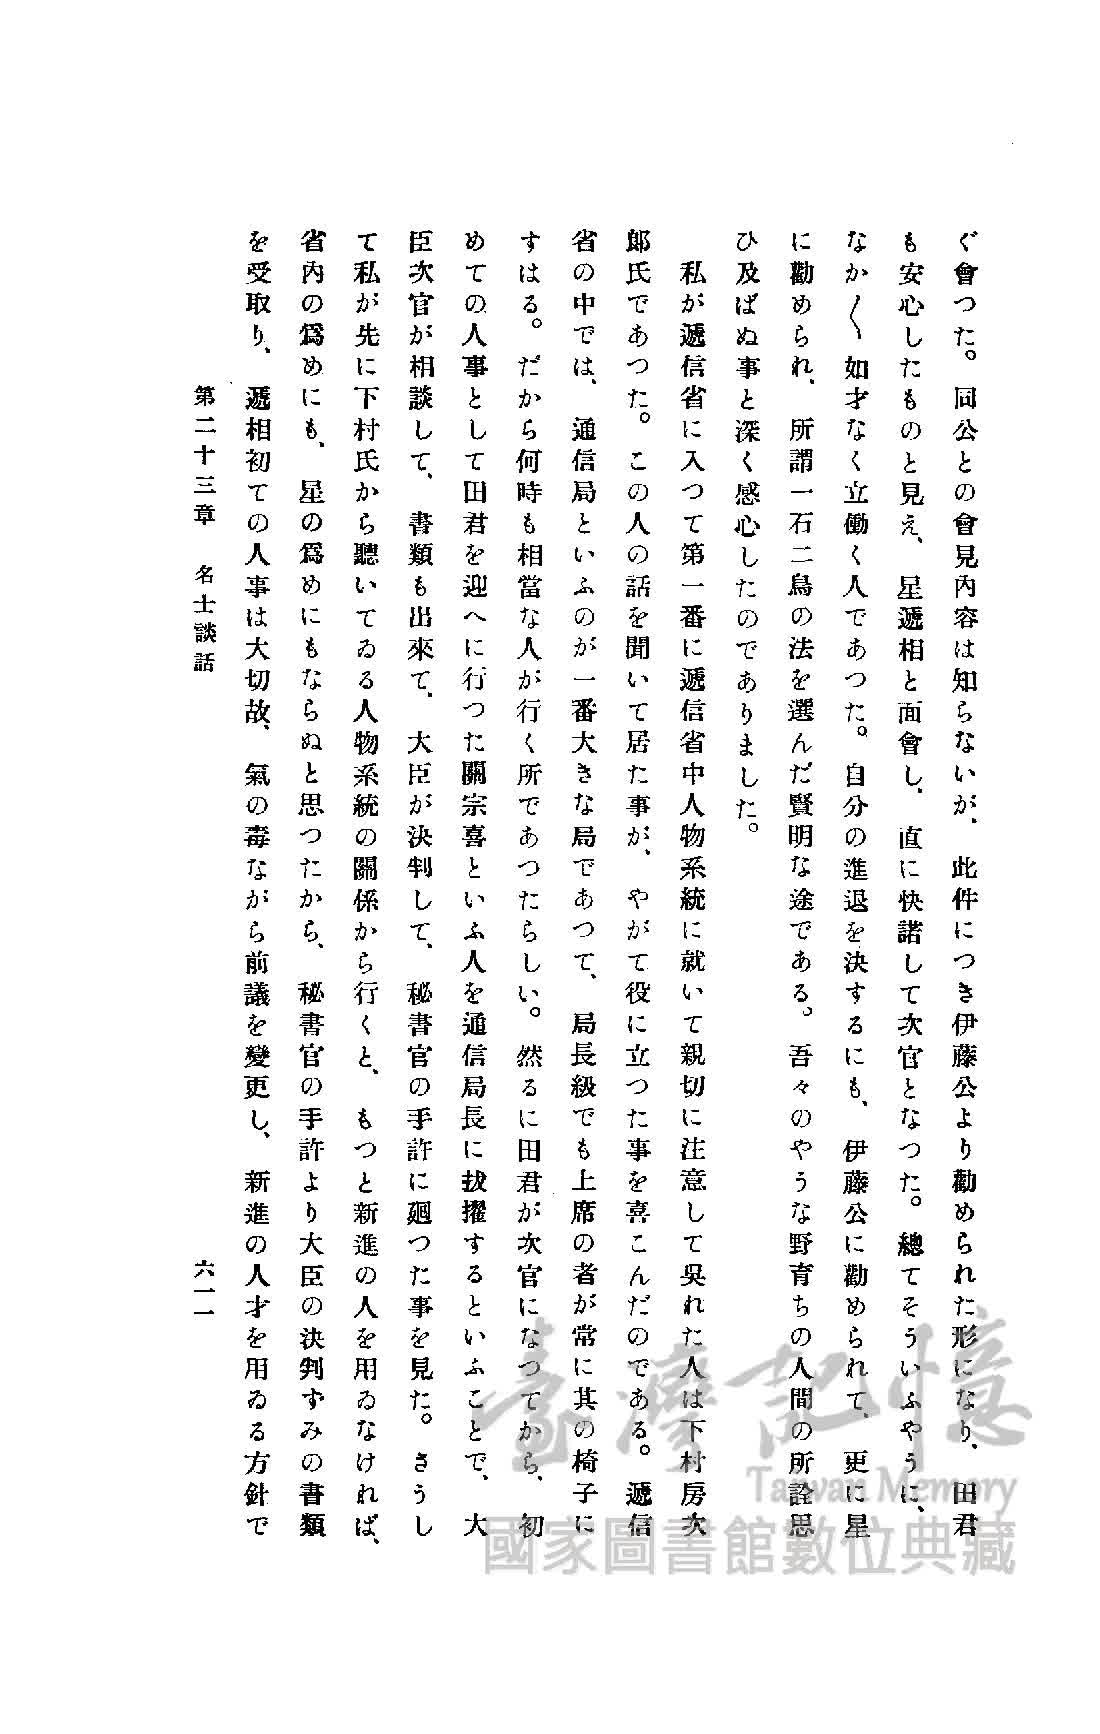 ぐ會つた。同公との會見內容は知らないが、此件につき伊藤公より勸められた形になり、田君
も安心したものと見え、星遞相と面會し、直に快諾して次官となつた。總てそういふやうに、
なか〱如才なく立働く人であつた。自分の進退を決するにも、伊藤公に勸められて、更に星
に勸められ、所謂一石二鳥の法を選んだ賢明な途である。吾々のやうな野育ちの人間の所詮思
ひ及ばぬ事と深く感心したのでありました。
私が遞信省に入つて第一番に遞信省中人物系統に就いて親切に注意して吳れた人は下村房次
郞氏であつた。この人の話を聞いて居た事が、やがて役に立つた事を喜こんだのである。遞信
省の中では、通信局といふのが一番大きな局であつて、局長級でも上席の者が常に其の椅子に
すはる。だから何時も相當な人が行く所であつたらしい。然るに田君が次官になつてから、初
めての人事として田君を迎へに行つた關宗喜といふ人を通信局長に拔擢するといふことで、大
臣次官が相談して、書類も出來て、大臣が決判して、秘書官の手許に廻つた事を見た。さうし
て私が先に下村氏から聽いてゐる人物系統の關係から行くと、もつと新進の人を用ゐなければ、
省內の爲めにも、星の爲めにもならぬと思つたから、秘書官の手許より大臣の決判ずみの書類
を受取り、遞相初ての人事は大切故、氣の毒ながら前議を變更し、新進の人才を用ゐる方針で
第二十三章　名士談話
六一一
臺灣記憶
Taiwan Memory
國家圖書館數位典藏